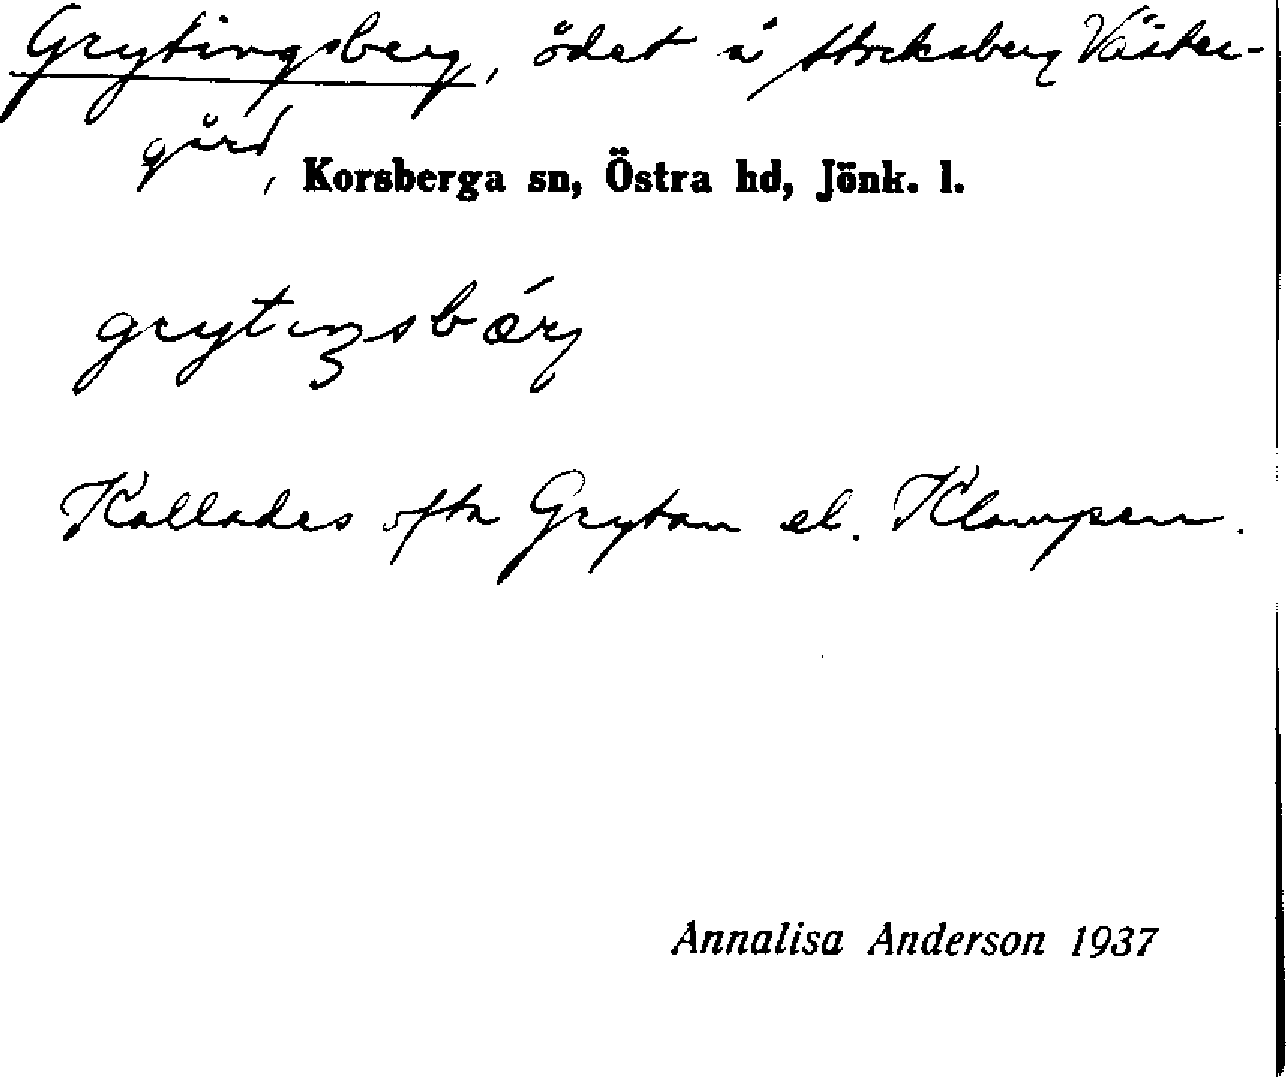 Grytingsberg, ödet å Stocksberg Väster-
gård,
Korsberga sn, Östra hd, Jönk. l.
grytıŋsbæ´rj
Kallades ofta Grytan el. Klampen.
Annalisa Anderson 1937